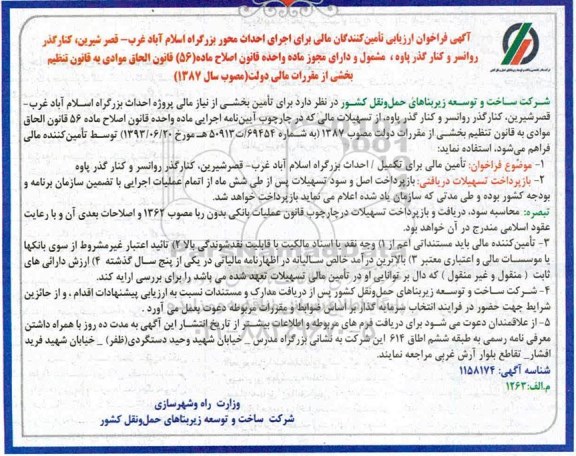 آگهی فراخوان ارزیابی تأمین‌کنندگان مالی برای اجرای احداث محور بزرگراه اسلام آباد غرب– قصر شیرین، کنارگذر
روانسر و کنار گذر پاوه ، مشمول و دارای مجوز ماده واحده قانون اصلاح ماده(۵۶) قانون الحاق موادی به قانون تنظیم
بخشی از مقررات مالی دولت(مصوب سال ۱۳۸۷)
شرکت ساخت و توسعه زیربناهای حمل‌ونقل کشور در نظر دارد برای تأمین بخشی از نیاز مالی پروژه احداث بزرگراه اسلام آباد غرب–
قصرشیرین، کنارگذر روانسر و کنار گذر پاوه، از تسهیلات مالی که در چارچوب آیین‌نامه اجرایی ماده واحده قانون اصلاح ماده ۵۶ قانون الحاق
موادی به قانون تنظیم بخشی از مقررات دولت مصوب ۱۳۸۷ (به شماره ۶۹۴۵۴/ت۵۰۹۱۳ هـ مورخ ۱۳۹۳/۰۶/۲۰) توسط تأمین‌کننده مالی
فراهم می‌شود، استفاده نماید:
۱- موضوع فراخوان: تأمین مالی برای تکمیل / احداث بزرگراه اسلام آباد غرب- قصرشیرین، کنارگذر روانسر و کنار گذر پاوه
۲- بازپرداخت تسهیلات دریافتی: بازپرداخت اصل و سود تسهیلات پس از طی شش ماه از اتمام عملیات اجرایی با تضمین سازمان برنامه و
بودجه کشور بوده و طی مدتی که سازمان یاد شده اعلام می نماید بازپرداخت خواهد شد.
تبصره: محاسبه سود، دریافت و بازپرداخت تسهیلات درچارچوب قانون عملیات بانکی بدون ربا مصوب ۱۳۶۲ و اصلاحات بعدی آن و با رعایت
عقود اسلامی مندرج در آن خواهد بود.
۳- تأمین‌کننده مالی باید مستنداتی اعم از ۱) وجه نقد یا اسناد مالکیت با قابلیت نقدشوندگی بالا ۲) تائید اعتبار غیرمشروط از سوی بانکها
یا موسسات مالی و اعتباری معتبر ۳) بالاترین درآمد خالص سالیانه در اظهارنامه مالیاتی در یکی از پنج سال گذشته ۴) ارزش دارائی های
ثابت ( منقول و غیر منقول ) که دال بر توانایی او در تأمین مالی تسهیلات تعهد شده می باشد را برای بررسی ارایه کند.
۴- شرکت ساخت و توسعه زیربناهای حمل‌ونقل کشور پس از دریافت مدارک و مستندات نسبت به ارزیابی پیشنهادات اقدام ، و از حائزین
شرایط جهت حضور در فرایند انتخاب سرمایه گذار بر اساس ضوابط و مقررات مربوطه دعوت بعمل می آورد .
۵- از علاقمندان دعوت می شود برای دریافت فرم های مربوطه و اطلاعات بیشتر از تاریخ انتشار این آگهی به مدت ده روز با همراه داشتن
معرفی نامه رسمی به طبقه ششم اطاق ۶۱۴ این شرکت به نشانی بزرگراه مدرس_ خیابان شهید وحید دستگردی(ظفر) _ خیابان شهید فرید
افشار_ تقاطع بلوار آرش غربی مراجعه نمایند.
شناسه آگهی: ۱۱۵۸۱۷۴
م.الف:۱۲۶۳
وزارت راه وشهرسازی
شرکت ساخت و توسعه زیربناهای حمل‌ونقل کشور